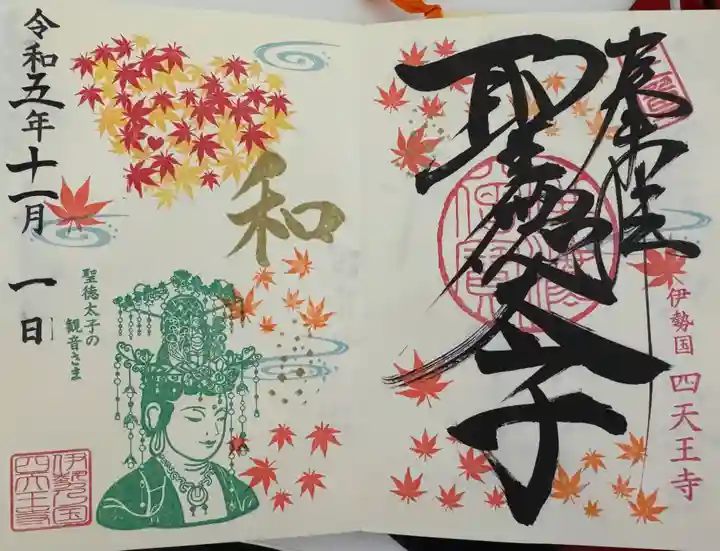 奉拝
聖徳太子
伊勢国 四天王寺
和
令和五年十一月一日
聖徳太子の
観音さま
伊勢之国
四天王寺